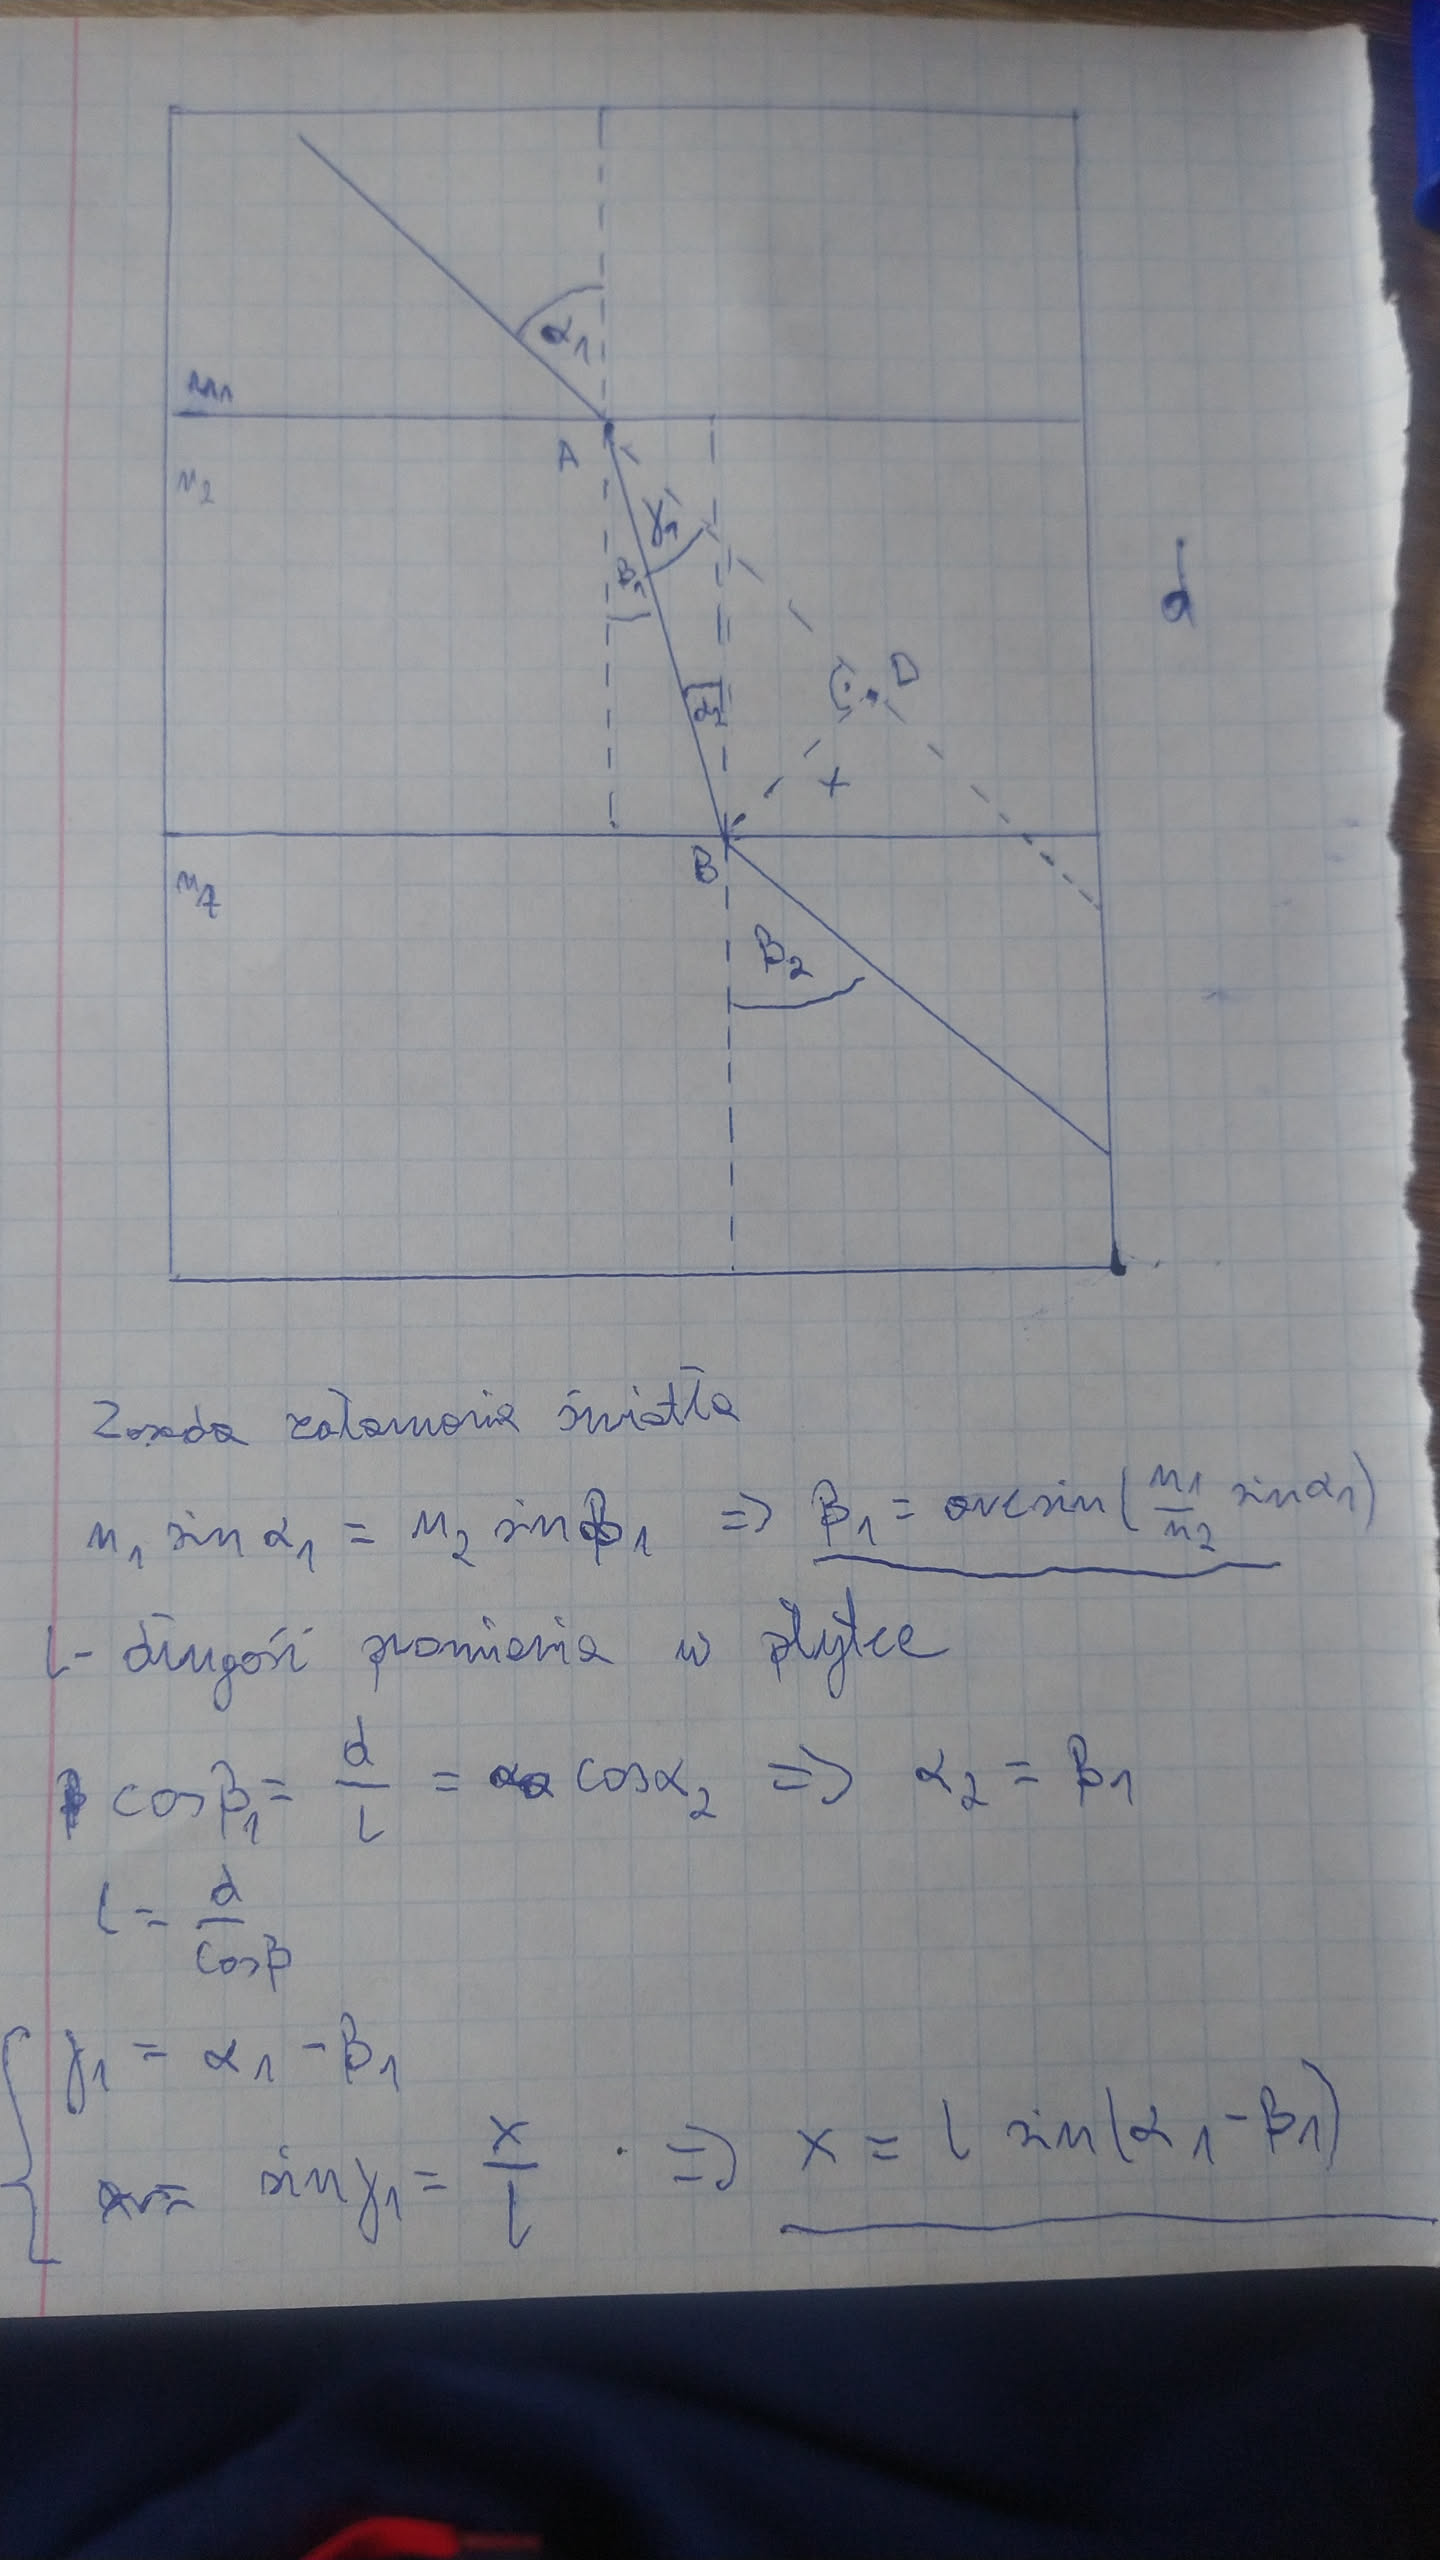 α₁
n₁
A
n₂
γ₁
β₁
d
D
α₂
x
B
n₁
β₂
Zasada załamania światła
n₁ sin α₁ = n₂ sin β₁ => β₁ = arcsin(n₁/n₂ sin α₁)
l - długość promienia w płytce
cos β₁ = d/l = cos α₂ => α₂ = β₁
l = d/cos β
γ₁ = α₁ - β₁
sin γ₁ = x/l · => x = l sin(α₁ - β₁)